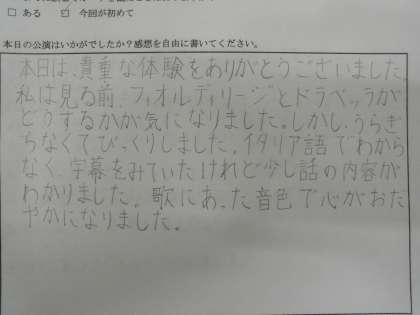 □ ある ☑ 今回が初めて
本日の公演はいかがでしたか？感想を自由に書いてください。
本日は、貴重な体験をありがとうございました。
私は見る前、フィオルディリージとドラベッラが
どうするかが気になりました。しかし、うらぎ
らなくてびっくりしました。イタリア語でわから
なく、字幕をみていたけれど少し話の内容が
わかりました。歌にあった音色で心がおだ
やかになりました。